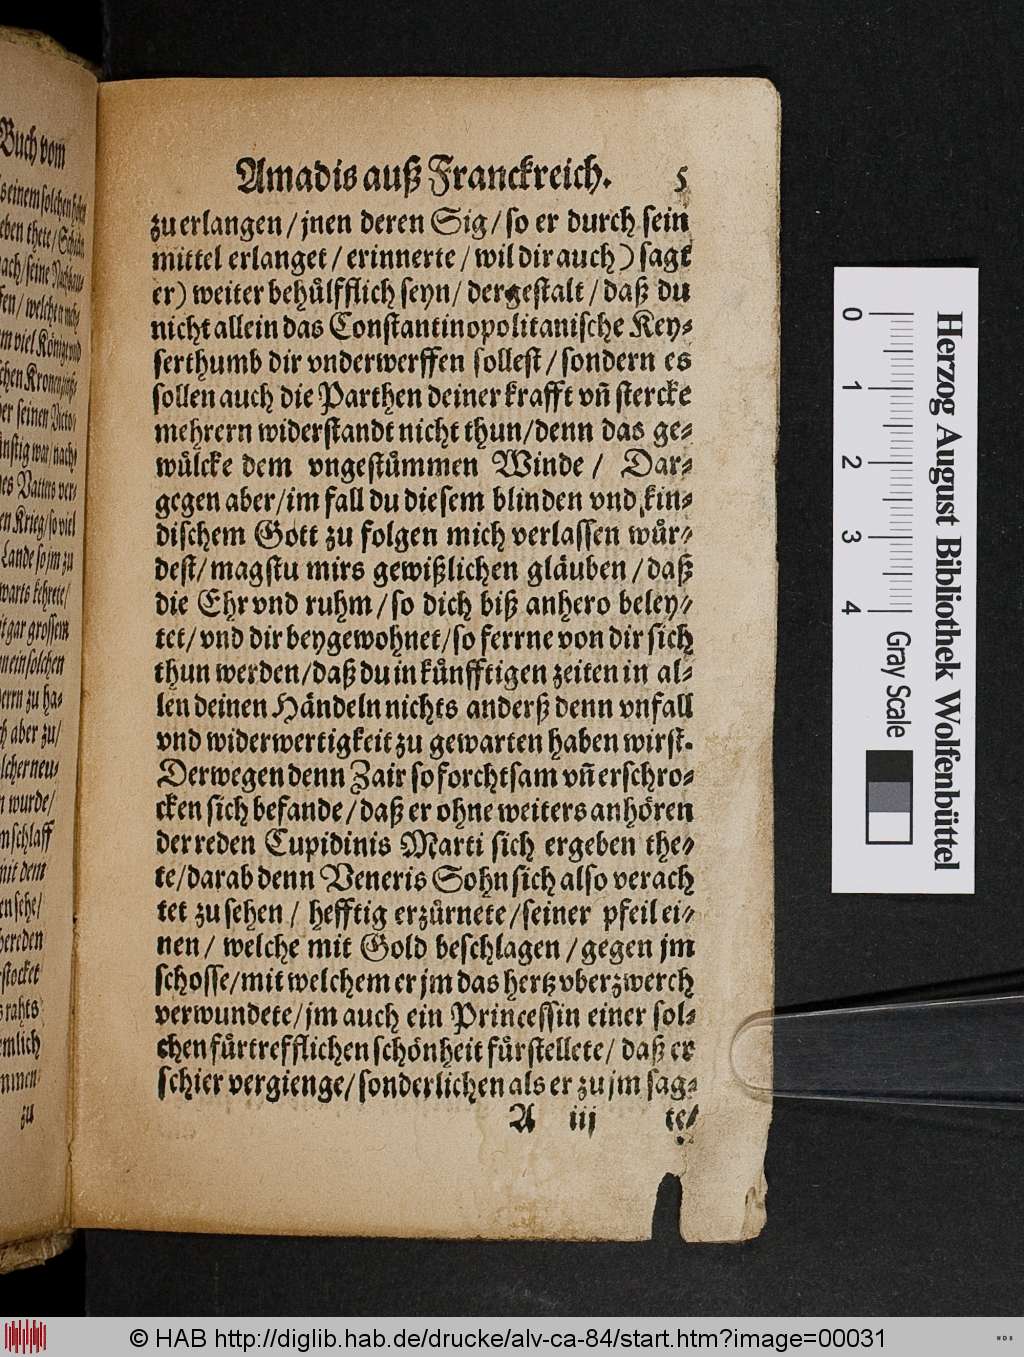 Buch vom
Amadis auß Franckreich. 5
zu erlangen / jnen deren Sig / so er durch sein
mittel erlanget / erinnerte / wil dir auch ) sagt
er) weiter behülfflich seyn / dergestalt / daß du
nicht allein das Constantinopolitanische Key-
serthumb dir vnderwerffen sollest / sondern es
sollen auch die Parthen deiner krafft vñ stercke
mehrern widerstandt nicht thun / denn das ge-
wülcke dem vngestümmen Winde / Dar-
gegen aber / im fall du diesem blinden vnd kin-
dischem Gott zu folgen mich verlassen wür-
dest / magstu mirs gewißlichen gläuben / daß
die Ehr vnd ruhm / so dich biß anhero beley-
tet / vnd dir beygewohnet / so ferrne von dir sich
thun werden / daß du in künfftigen zeiten in al-
len deinen Händeln nichts anderß denn vnfall
vnd widerwertigkeit zu gewarten haben wirst.
Derwegen denn Zair so forchtsam vñ erschro-
cken sich befande / daß er ohne weiters anhören
der reden Cupidinis Marti sich ergeben the-
te / darab denn Veneris Sohn sich also verach
tet zu sehen / hefftig erzürnete / seiner pfeil ei-
nen / welche mit Gold beschlagen / gegen jm
schosse / mit welchem er jm das hertz vberzwerch
verwundete / jm auch ein Princessin einer sol-
chen fürtrefflichen schönheit fürstellete / daß er
schier vergienge / sonderlichen als er zu jm sag-
A iij te /
Herzog August Bibliothek Wolfenbüttel
0 1 2 3 4 Gray Scale
© HAB http://diglib.hab.de/drucke/alv-ca-84/start.htm?image=00031